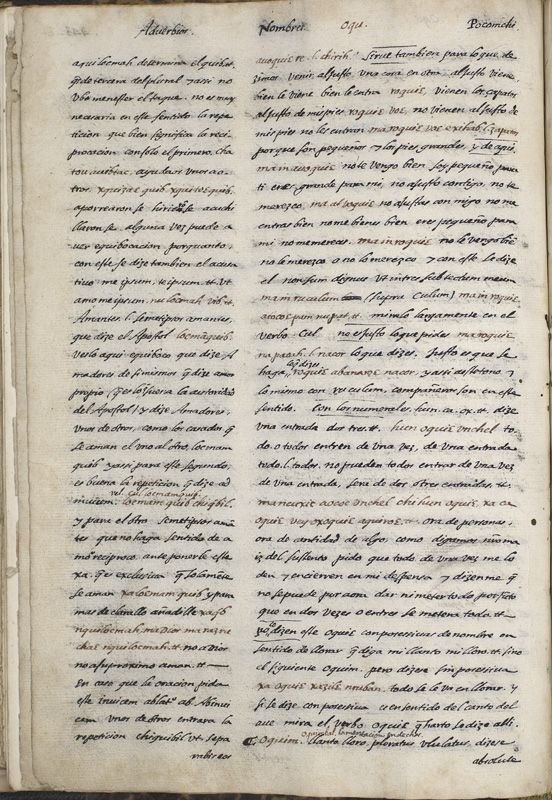 Adverbios. Nombres. oqu. Pocomchi
aqui locmah determina el quib. tt.
q̃ es de tercera del plural y assi no
vbo menester el taque. no es muy
necesaria en este sentido la repe
ticion que bien significa la reci
procacion con solo el primero. cha
tou auibtac, ayudaos vnos a o-
tros. xquizac quib xquitoe quib.
aporrearonse hirieronse acuchi
llaronse. alguna vez puede a
uer equibocacion porquanto,
con este se dize tambien el acusa
tiuo me ipsum, te ipsum. tt. Vt
amo me ipsum, nu locmah vib. tt.
Amantes. l. semetipsos amantes,
que dize el Apostol locmaquib.
veslo aqui equiboco que dize, A
madores de si mismos q̃ dize amor
propio
del Apostol) y dize Amadores,
vnos de otros, como los casados q̃
se aman el vno al otro, locmam
quib. y assi para este segundo,
es buena la repeticion q̃ dize ad
vel. cui. locmamquib.
inuicem. locmam quib chiquibil.
y para el otro semetipsos aman
tes que no haga sentido de a
mor reciproco anteponerle este
xa. q̃ es exclusiua q̃ solamente
se aman xa locmam quib, y pa
mas declarallo añadille
nquilocmah. ma Dios ma ras ne
chac nquilocmah. tt. no a Dios
no a su proximo aman. tt.
En caso que la oracion pida
este inuicem ablat. ab. Ab inui
cem. vnos de otros entrara la
repeticion chiquibil vt. sepa
raberos
auoquis re. l. chirih. Sirue tambien para lo que de
zimos venir al justo vna cosa en otra. al justo viene,
bien le viene bien le entra roquis, vienen los çapatos
al justo de mis pies roquis voc, no vienen al justo de
mis pies no les entran ma roquis voc exihab. l. zapatos
porque son pequeños y los pies grandes, y de aqui,
ma in auoquis no te vengo bien soy pequeño para
ti eres grande para mi, no ajusto contigo, no te
merezco. ma at voquis no ajustas con migo no me
entras bien no me bienes bien eres pequeño para
mi no me mereces. ma in roquis no le vengo bie
no le merezco o no lo merezco y con este se dize
el non sum dignus Vt intres sub tectum meum
ma in ruculum (supra Culum) ma in roquis,
atoc pan nu pat, tt. miralo largamente en el
verbo Cul. no es justo lo que pides ma roquis
na pahch. l. nacor lo que dizes. Justo es que se
lo q̃ dizes
haga, roquis abanaric nacor, y assi dessotros y
lo mismo con ru culum, compañeros son en este
sentido. Con los numerales, hun. ca. ox. tt. dize
vna entrada dos tres. tt. hun oquis vnchel to
do. o todos entren de vna vez, de vna entrada
todo. l. todos. no pueden todos entrar de vna vez
de vna entrada, sera de dos o tres entradas. tt.
mancuxic aococ vnchel chi hun oquis, xa ca
oquis vey oxoquis aquiroc. ora de personas,
ora de cantidad de algo. como digamos vn ma
iz del sustento pido que todo de vna vez me lo
den y encierren en mi despensa y dizenme q̃
no se puede
que en dos vezes o en tres se metera todo. tt.
lo dizen este oquis con posessiuas de nombre en
sentido de llorar q̃ diga mi llanto mi lloro. tt. sino
el siguiente oquim. pero dizese sin possessiua
xa oquis xazilic nruban. todo se le va en llorar. y
si se dize con posessiua es en sentido del canto del
aue mira el verbo oquis q̃ harto se dize alli.
oquinbal, lamentacion, endechas.
¶. Oquim. llanto lloro, ploratus vlulatus, dizese
absolute